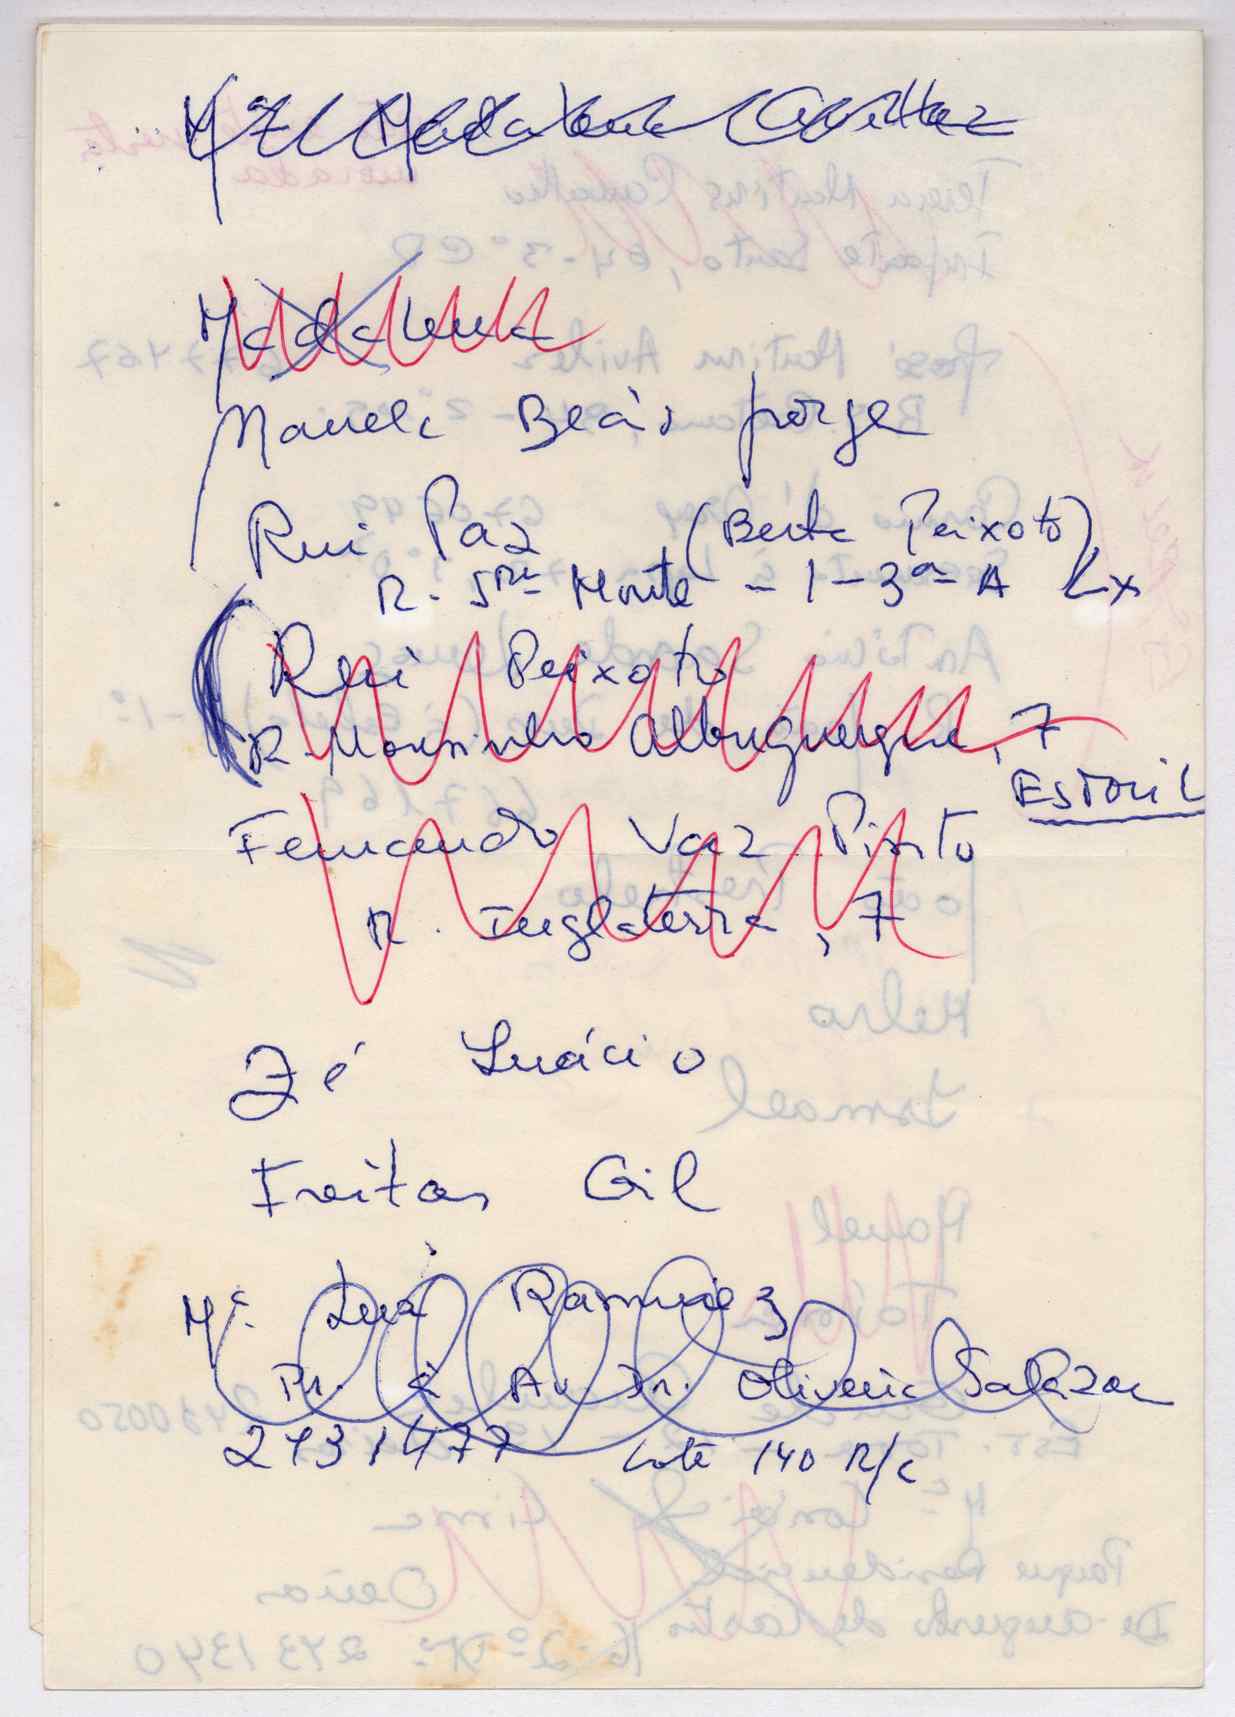 Mª Madalena
Madalena
Manuela Beàis Jorge
Rui Paz (Berta Peixoto)
R. Srª Monte - 1 - 3º - A Lx
(Rui Peixoto
R. Mousinho Albuquerque, 7
ESTORIL
Fernando Vaz Pinto
R. Inglaterra, 7
Zé Inácio
Freitas Gil
Mª. Ramirez
Pr. à Av. Dr. Oliveira Salazar
2431477 Lote 140 R/c